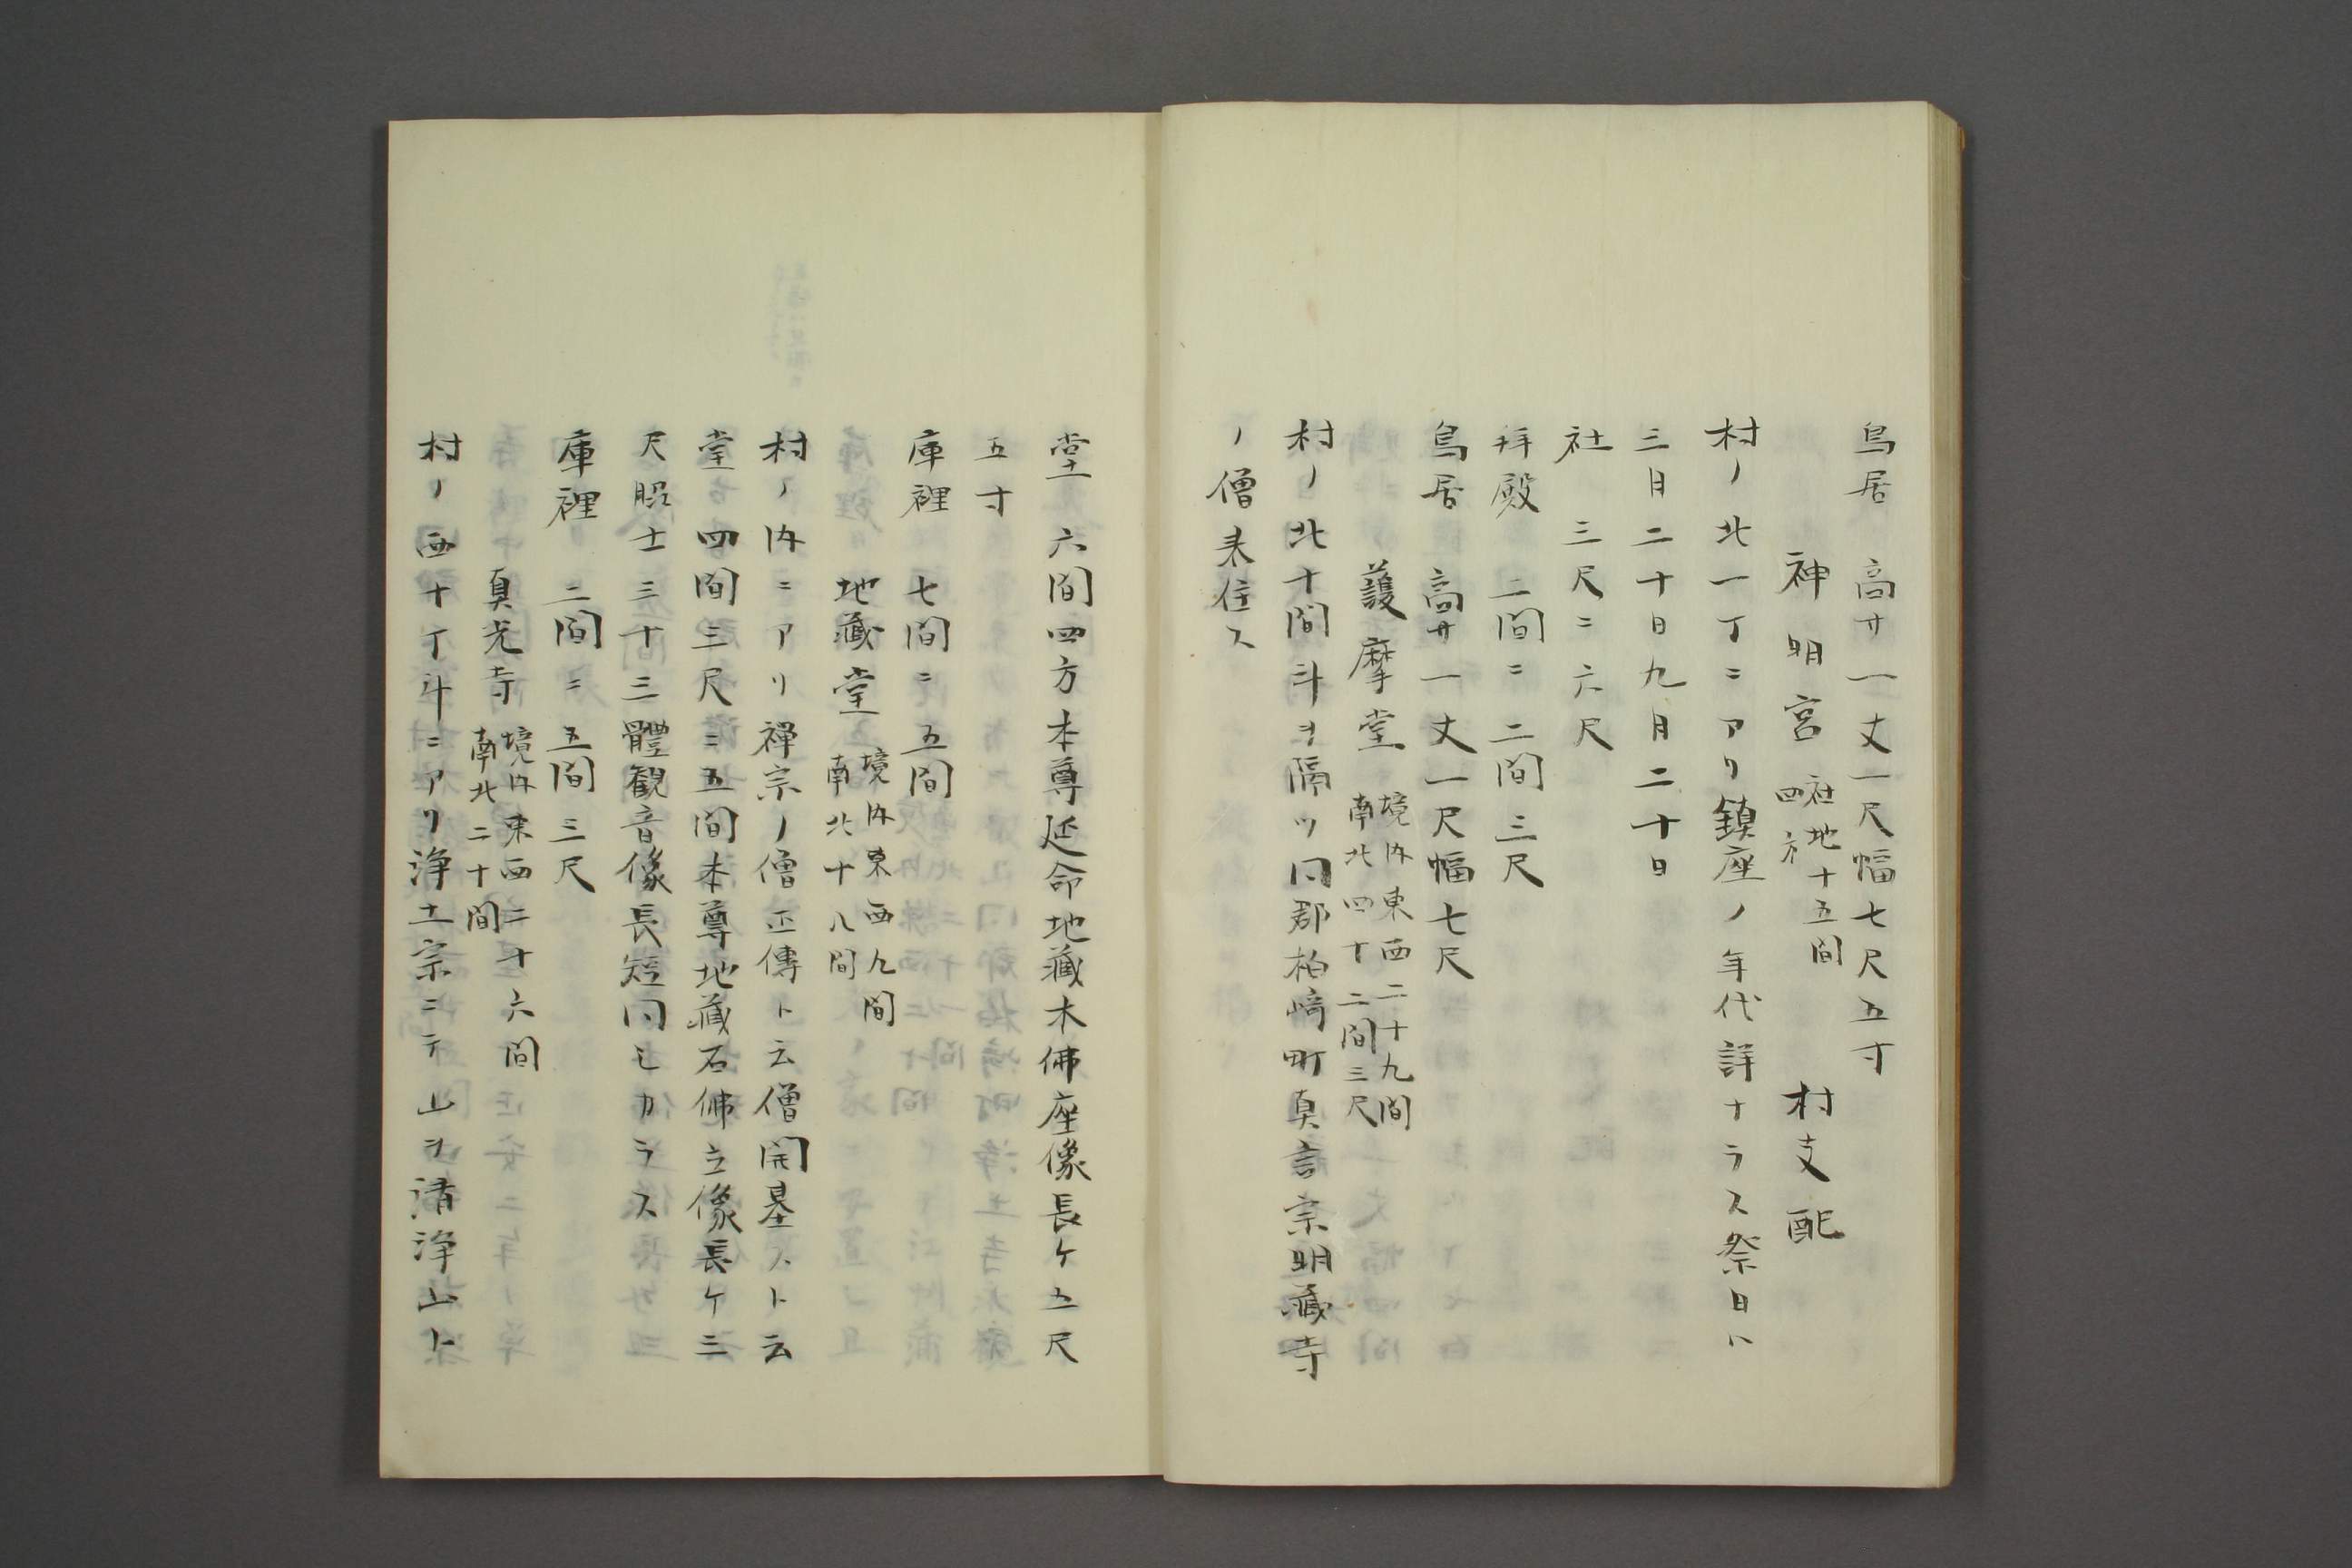 鳥居　高サ一丈一尺幅七尺五寸
神明宮　社地十五間
四方　村支配
村ノ北一丁ニアリ鎮座ノ年代詳ナラス祭日ハ
三月二十日九月二十日
社　三尺ニ六尺
拝殿　二間ニ二間三尺
鳥居　高サ一丈一尺幅七尺
護摩堂　境内東西二十九間
南北四十二間三尺
村ノ北十間斗ヲ隔ツ同郡柏崎町真言宗明藏寺
ノ僧来住ス
堂　六間四方本尊延命地藏木佛座像長ケ五尺
五寸
庫裡　七間ニ五間
地藏堂　境内東西九間
南北十八間
村ノ内ニアリ禅宗ノ僧正傳ト云僧開基スト云
堂　四間三尺ニ五間本尊地藏石佛立像長ケ三
尺脇士三十三體観音像長短同シカラス
庫裡　二間ニ五間三尺
真光寺　境内東西二十六間
南北二十間
村ノ西十丁斗ニアリ浄土宗ニテ山ヲ清浄山ト